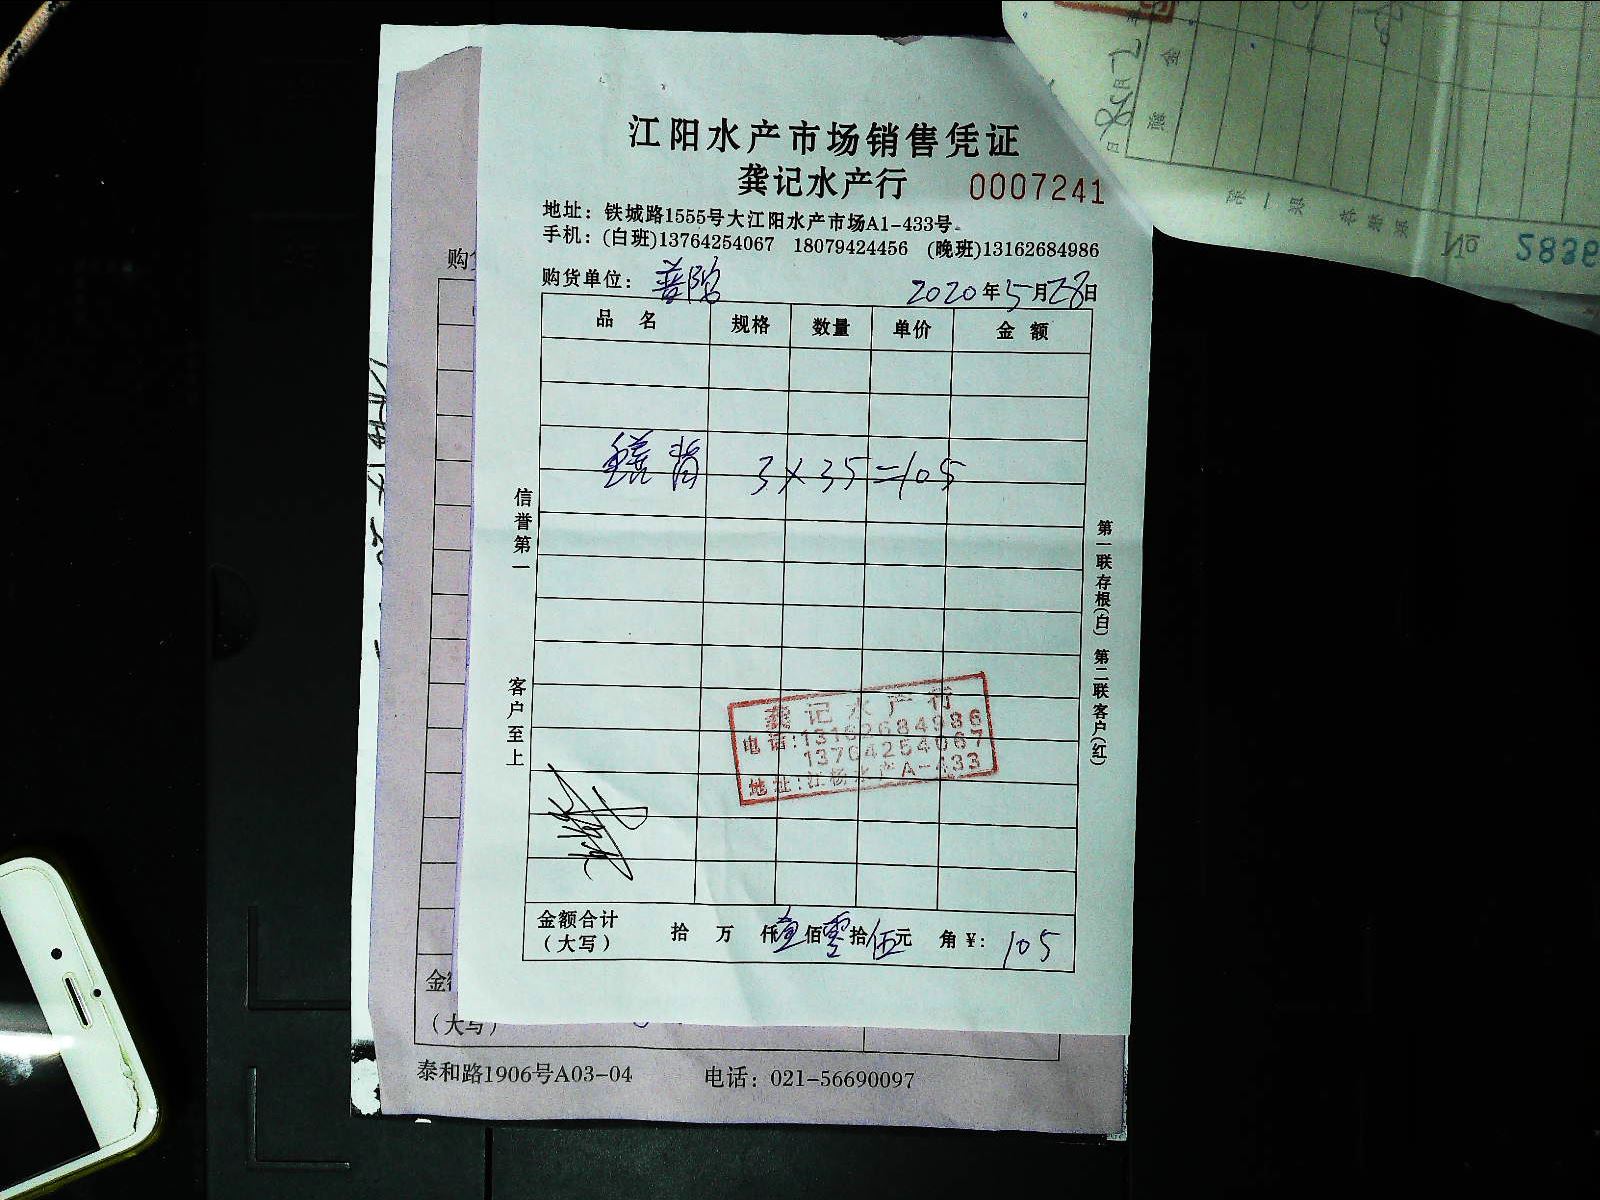 江阳水产市场销售凭证
龚记水产行 0007241
地址：铁城路1555号大江阳水产市场A1-433号
手机：(白班)13764254067 18079424456 (晚班)13162684986
购货单位： 2020年5月28日
品名 规格 数量 单价 金额
鳝背 3×35=105
信誉第一
客户至上
第一联存根(白) 第二联客户(红)
龚记水产行
电话:13162684986
13764254067
地址:江杨水产A-433
金额合计 拾 万 仟壹佰零拾伍元 角 ¥: 105
(大写)
购
金
(大写)
泰和路1906号A03-04 电话：021-56690097
No 2836